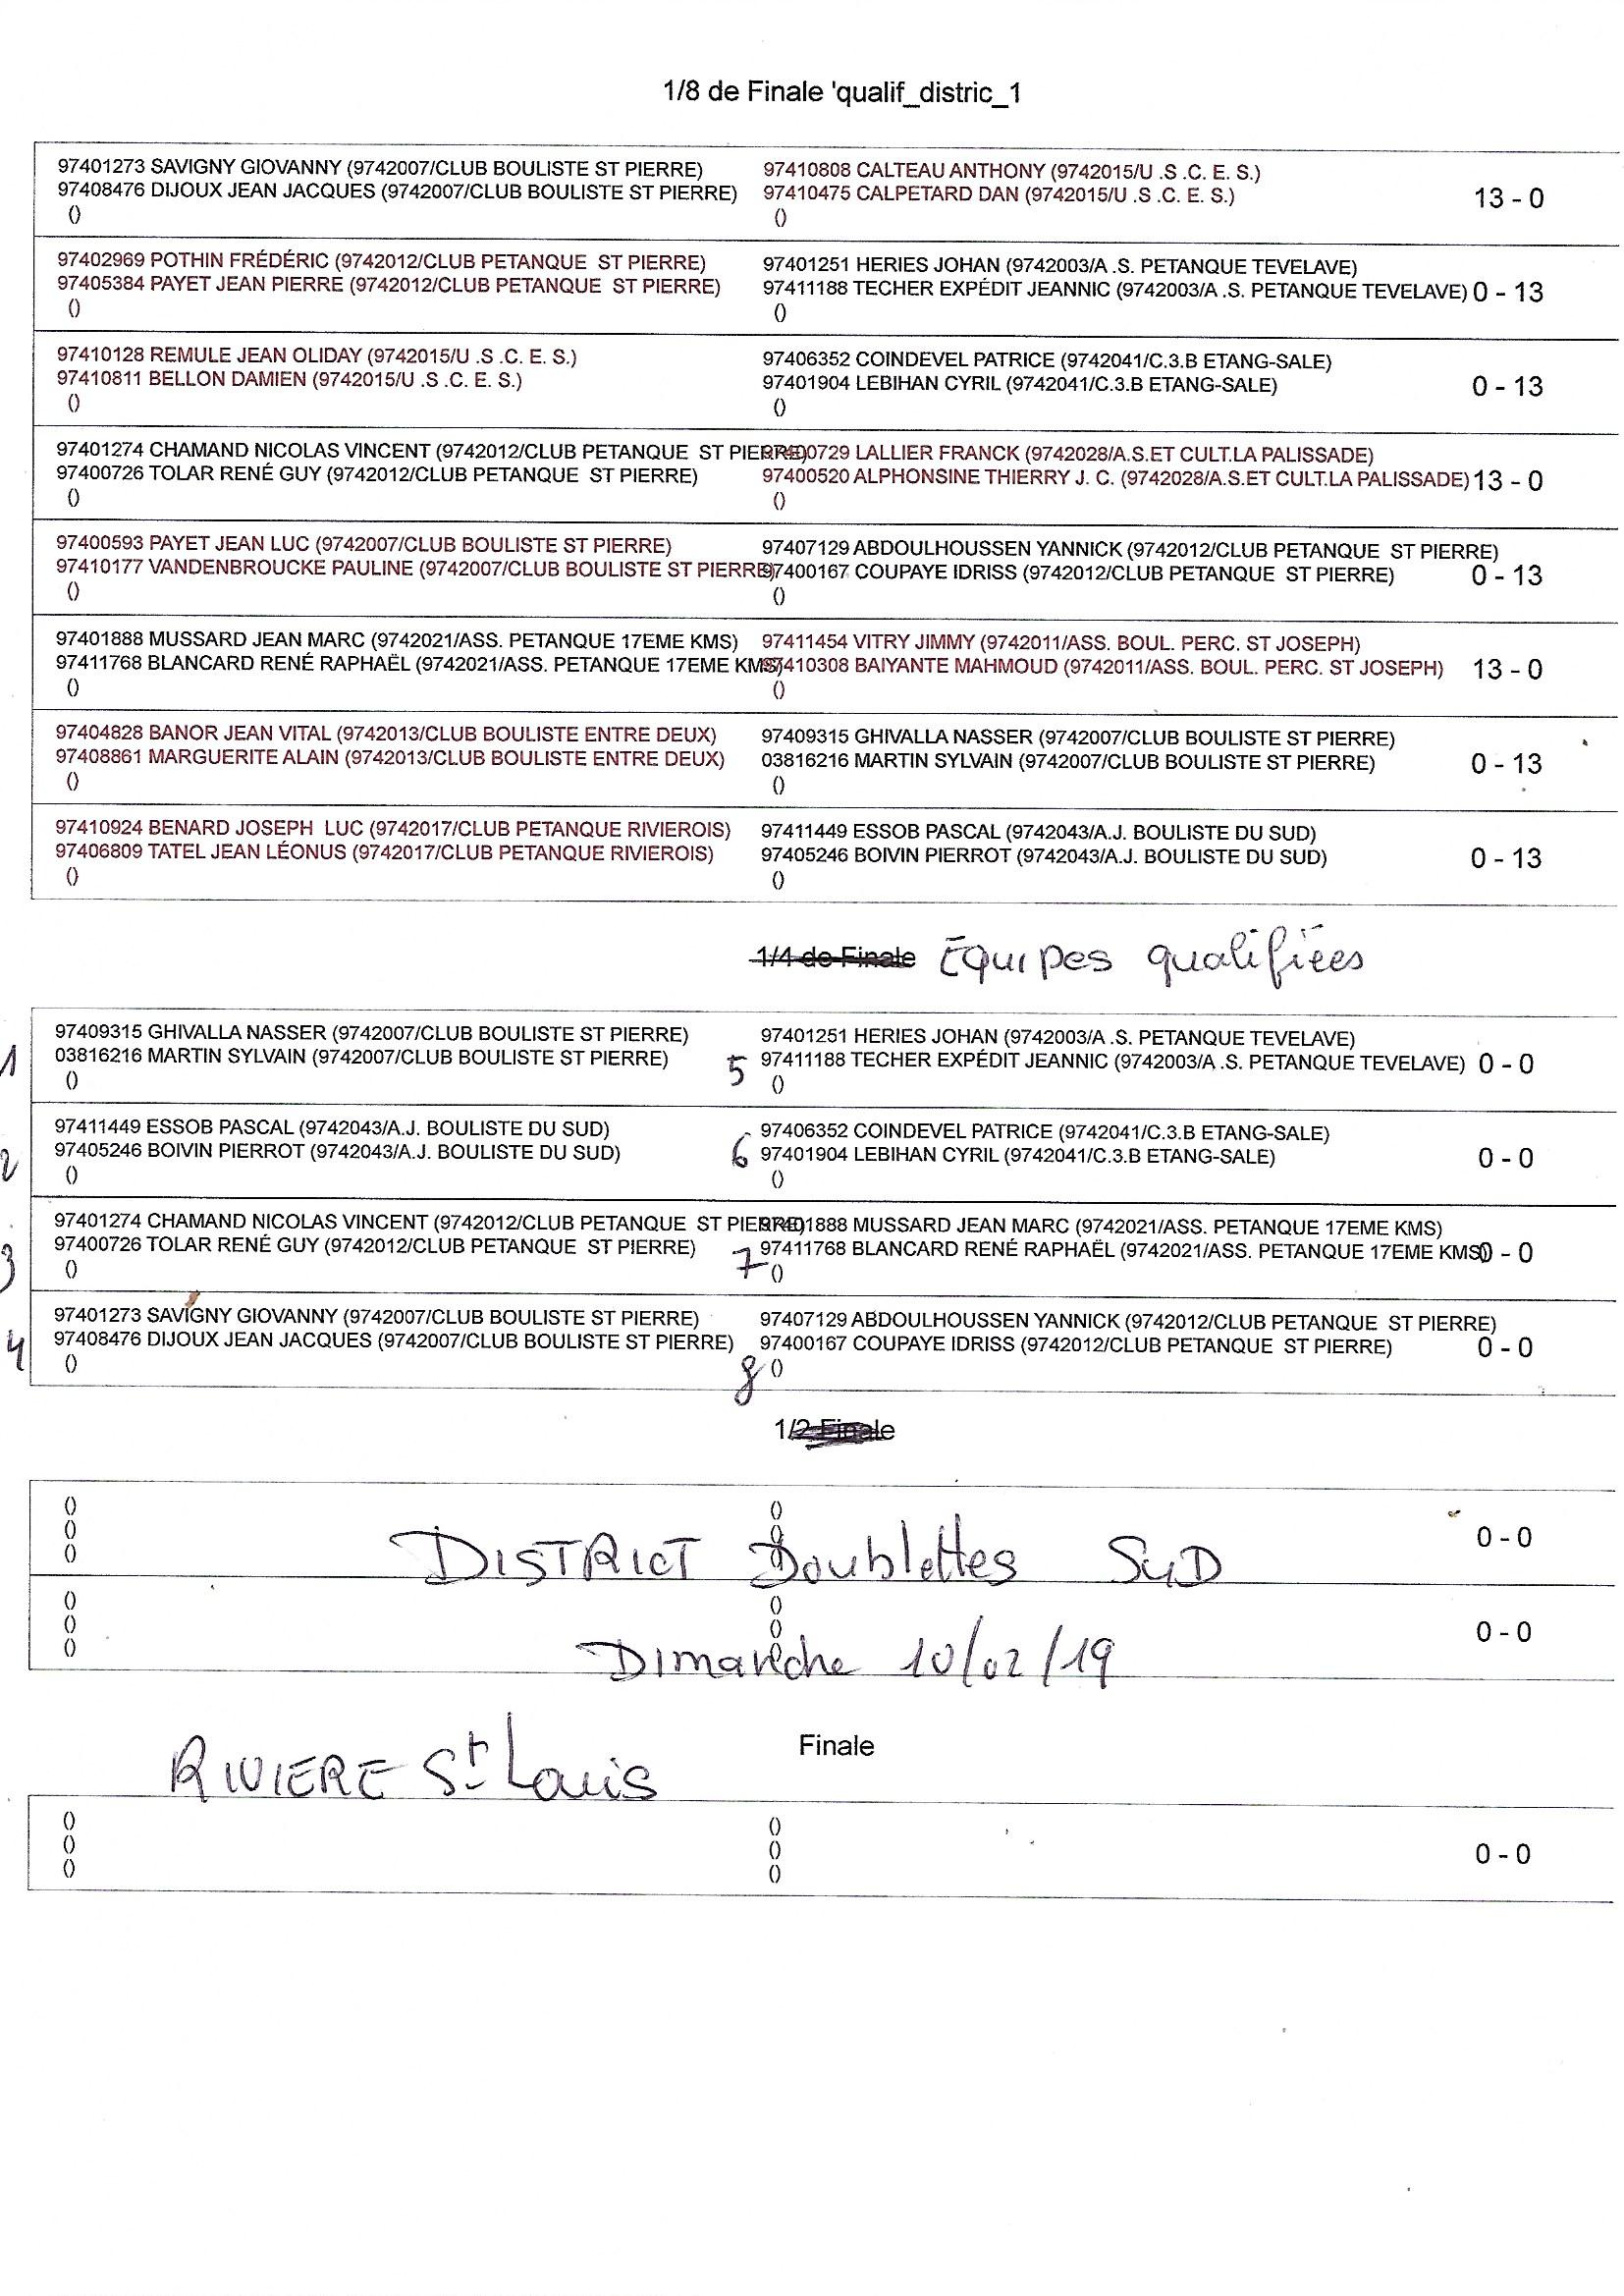 1/8 de Finale 'qualif_distric_1
97401273 SAVIGNY GIOVANNY (9742007/CLUB BOULISTE ST PIERRE) 97410808 CALTEAU ANTHONY (9742015/U .S .C. E. S.)
97408476 DIJOUX JEAN JACQUES (9742007/CLUB BOULISTE ST PIERRE) 97410475 CALPETARD DAN (9742015/U .S .C. E. S.) 13 - 0
() ()
97402969 POTHIN FRÉDÉRIC (9742012/CLUB PETANQUE ST PIERRE) 97401251 HERIES JOHAN (9742003/A .S. PETANQUE TEVELAVE)
97405384 PAYET JEAN PIERRE (9742012/CLUB PETANQUE ST PIERRE) 97411188 TECHER EXPÉDIT JEANNIC (9742003/A .S. PETANQUE TEVELAVE) 0 - 13
() ()
97410128 REMULE JEAN OLIDAY (9742015/U .S .C. E. S.) 97406352 COINDEVEL PATRICE (9742041/C.3.B ETANG-SALE)
97410811 BELLON DAMIEN (9742015/U .S .C. E. S.) 97401904 LEBIHAN CYRIL (9742041/C.3.B ETANG-SALE) 0 - 13
() ()
97401274 CHAMAND NICOLAS VINCENT (9742012/CLUB PETANQUE ST PIERRE) 97400729 LALLIER FRANCK (9742028/A.S.ET CULT.LA PALISSADE)
97400726 TOLAR RENÉ GUY (9742012/CLUB PETANQUE ST PIERRE) 97400520 ALPHONSINE THIERRY J. C. (9742028/A.S.ET CULT.LA PALISSADE) 13 - 0
() ()
97400593 PAYET JEAN LUC (9742007/CLUB BOULISTE ST PIERRE) 97407129 ABDOULHOUSSEN YANNICK (9742012/CLUB PETANQUE ST PIERRE)
97410177 VANDENBROUCKE PAULINE (9742007/CLUB BOULISTE ST PIERRE) 97400167 COUPAYE IDRISS (9742012/CLUB PETANQUE ST PIERRE) 0 - 13
() ()
97401888 MUSSARD JEAN MARC (9742021/ASS. PETANQUE 17EME KMS) 97411454 VITRY JIMMY (9742011/ASS. BOUL. PERC. ST JOSEPH)
97411768 BLANCARD RENÉ RAPHAËL (9742021/ASS. PETANQUE 17EME KMS) 97410308 BAIYANTE MAHMOUD (9742011/ASS. BOUL. PERC. ST JOSEPH) 13 - 0
() ()
97404828 BANOR JEAN VITAL (9742013/CLUB BOULISTE ENTRE DEUX) 97409315 GHIVALLA NASSER (9742007/CLUB BOULISTE ST PIERRE)
97408861 MARGUERITE ALAIN (9742013/CLUB BOULISTE ENTRE DEUX) 03816216 MARTIN SYLVAIN (9742007/CLUB BOULISTE ST PIERRE) 0 - 13
() ()
97410924 BENARD JOSEPH LUC (9742017/CLUB PETANQUE RIVIEROIS) 97411449 ESSOB PASCAL (9742043/A.J. BOULISTE DU SUD)
97406809 TATEL JEAN LÉONUS (9742017/CLUB PETANQUE RIVIEROIS) 97405246 BOIVIN PIERROT (9742043/A.J. BOULISTE DU SUD) 0 - 13
() ()
1/4 de Finale Equipes qualifiées
97409315 GHIVALLA NASSER (9742007/CLUB BOULISTE ST PIERRE) 97401251 HERIES JOHAN (9742003/A .S. PETANQUE TEVELAVE)
1 03816216 MARTIN SYLVAIN (9742007/CLUB BOULISTE ST PIERRE) 5 97411188 TECHER EXPÉDIT JEANNIC (9742003/A .S. PETANQUE TEVELAVE) 0 - 0
() ()
97411449 ESSOB PASCAL (9742043/A.J. BOULISTE DU SUD) 97406352 COINDEVEL PATRICE (9742041/C.3.B ETANG-SALE)
2 97405246 BOIVIN PIERROT (9742043/A.J. BOULISTE DU SUD) 6 97401904 LEBIHAN CYRIL (9742041/C.3.B ETANG-SALE) 0 - 0
() ()
97401274 CHAMAND NICOLAS VINCENT (9742012/CLUB PETANQUE ST PIERRE) 97401888 MUSSARD JEAN MARC (9742021/ASS. PETANQUE 17EME KMS)
3 97400726 TOLAR RENÉ GUY (9742012/CLUB PETANQUE ST PIERRE) 7 97411768 BLANCARD RENÉ RAPHAËL (9742021/ASS. PETANQUE 17EME KMS) 0 - 0
() ()
97401273 SAVIGNY GIOVANNY (9742007/CLUB BOULISTE ST PIERRE) 97407129 ABDOULHOUSSEN YANNICK (9742012/CLUB PETANQUE ST PIERRE)
4 97408476 DIJOUX JEAN JACQUES (9742007/CLUB BOULISTE ST PIERRE) 97400167 COUPAYE IDRISS (9742012/CLUB PETANQUE ST PIERRE) 0 - 0
() 8 ()
1/2 Finale
() ()
() () 0 - 0
() ()
DISTRICT Doublettes SUD
() ()
() () 0 - 0
() ()
Dimanche 10/02/19
Finale
RIVIERE St Louis
() ()
() () 0 - 0
() ()